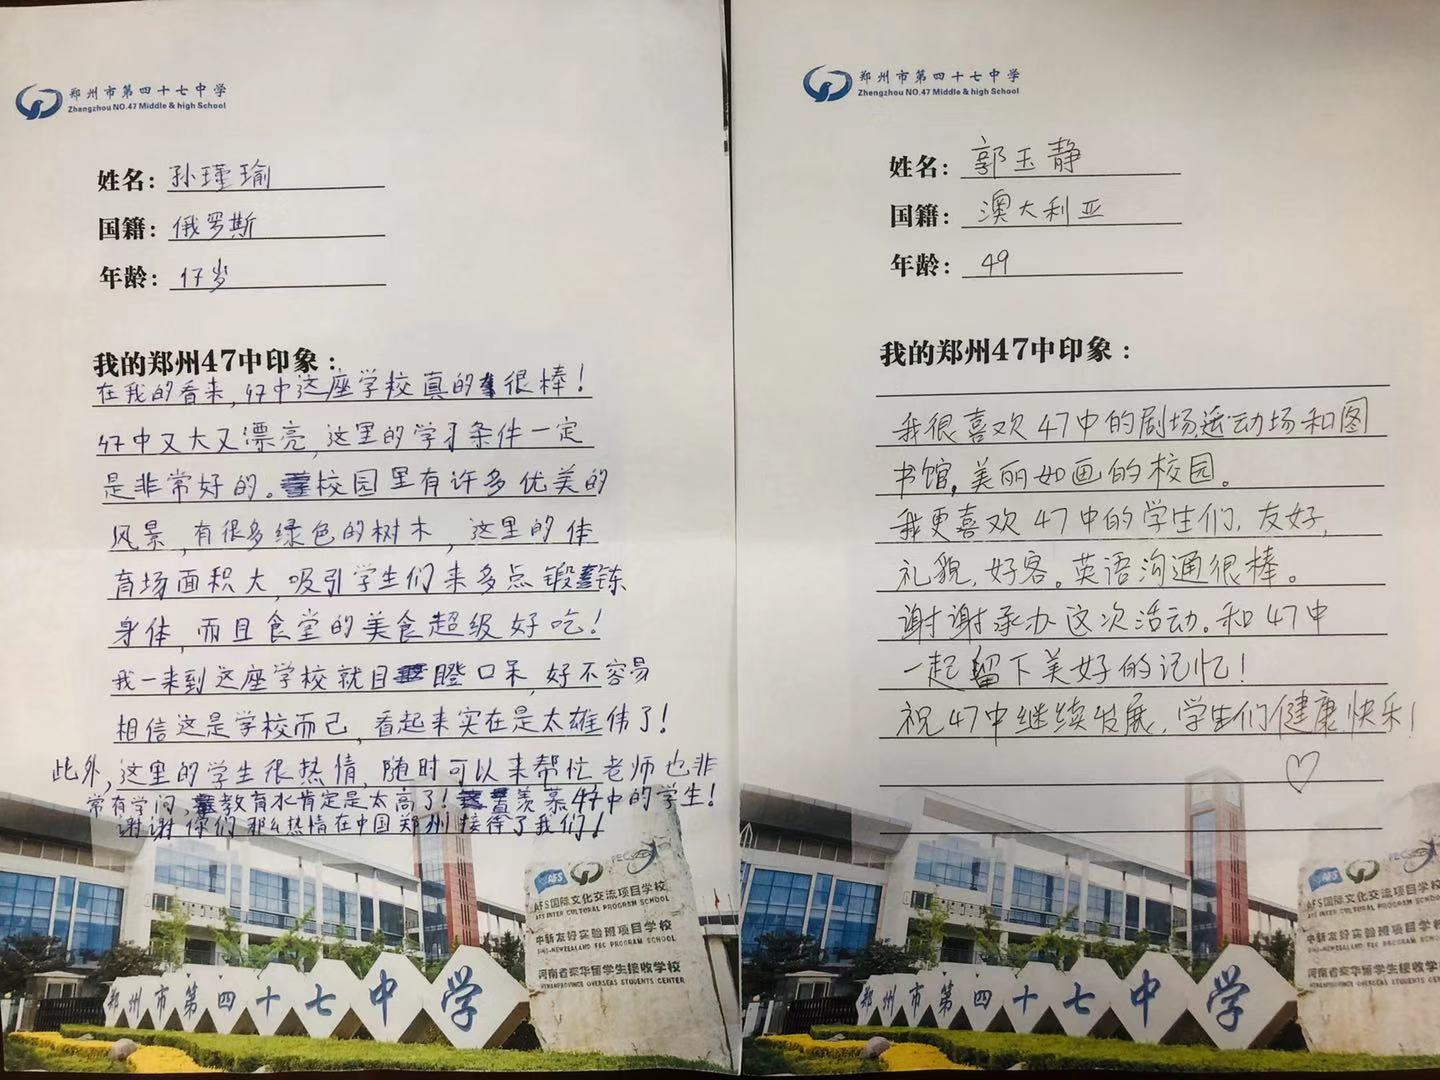 郑州市第四十七中学
Zhengzhou NO.47 Middle & high School
姓名：孙瑾瑜
国籍：俄罗斯
年龄：17岁
我的郑州47中印象：
在我的看来，47中这座学校真的很棒！
47中又大又漂亮，这里的学习条件一定
是非常好的。校园里有许多优美的
风景，有很多绿色的树木，这里的体
育场面积大，吸引学生们来多点锻炼
身体，而且食堂的美食超级好吃！
我一来到这座学校就目瞪口呆，好不容易
相信这是学校而已，看起来实在是太雄伟了！
此外，这里的学生很热情，随时可以来帮忙老师也非
常有学问，教育水肯定是太高了！羡慕47中的学生！
谢谢你们那么热情在中国郑州接待了我们！
AFS
FEC
AFS国际文化交流项目学校
AFS INTER CULTURAL PROGRAM SCHOOL
中新友好实验班项目学校
SINO-NEWZEALAND FEC PROGRAM SCHOOL
河南省来华留学生接收学校
HENANPROVINCE OVERSEAS STUDENTS CENTER
郑州市第四十七中学
郑州市第四十七中学
Zhengzhou NO.47 Middle & high School
姓名：郭玉静
国籍：澳大利亚
年龄：49
我的郑州47中印象：
我很喜欢47中的剧场，运动场和图
书馆，美丽如画的校园。
我更喜欢47中的学生们，友好，
礼貌，好客。英语沟通很棒。
谢谢承办这次活动。和47中
一起留下美好的记忆！
祝47中继续发展，学生们健康快乐！
AFS
FEC
AFS国际文化交流项目学校
AFS INTER CULTURAL PROGRAM SCHOOL
中新友好实验班项目学
SINO-NEWZEALAND FEC PROGRAM SCH
河南省来华留学生接收学
HENANPROVINCE OVERSEAS STUDENTS CE
郑州市第四十七中学